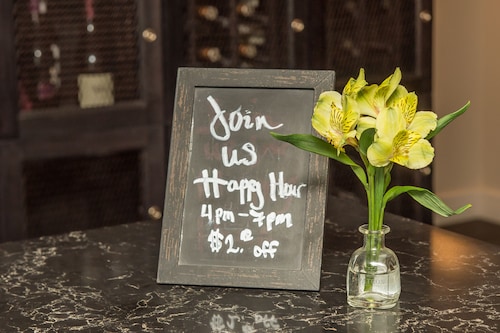 Join
us
Happy Hour
4pm-7pm
@
$2. off